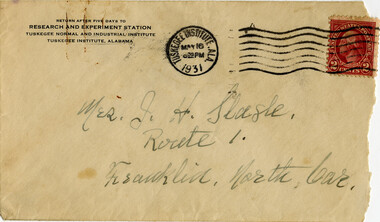 RETURN AFTER FIVE DAYS TO
RESEARCH AND EXPERIMENT STATION
TUSKEGEE NORMAL AND INDUSTRIAL INSTITUTE
TUSKEGEE INSTITUTE, ALABAMA
TUSKEGEE INSTITUTE, ALA.
MAY 16
1931
2 2
Mrs. J. H. Slagle,
Route 1.
Franklin, North, Car.